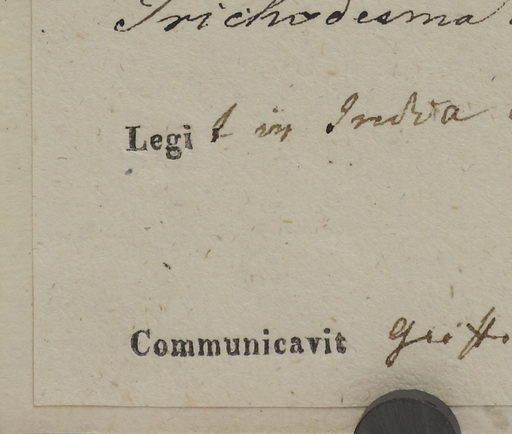 Trichodesma
Legit in India
Communicavit Griff